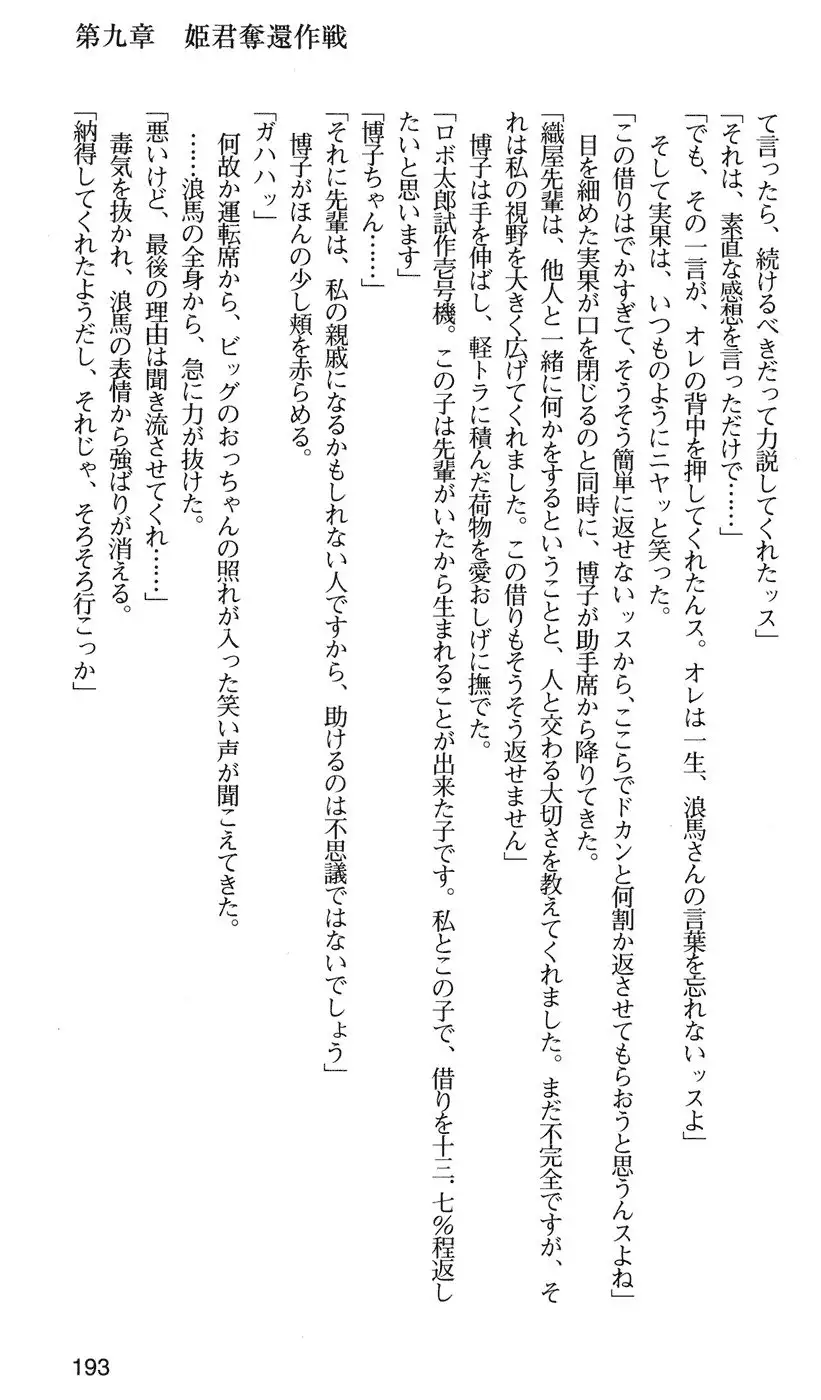 第九章　姫君奪還作戦
て言ったら、続けるべきだって力説してくれたッス」
「それは、素直な感想を言っただけで……」
「でも、その一言が、オレの背中を押してくれたんス。オレは一生、浪馬さんの言葉を忘れないッスよ」
　そして実果は、いつものようにニヤッと笑った。
「この借りはでかすぎて、そうそう簡単に返せないッスから、ここらでドカンと何割か返させてもらおうと思うんスよね」
　目を細めた実果が口を閉じるのと同時に、博子が助手席から降りてきた。
「織屋先輩は、他人と一緒に何かをするということと、人と交わる大切さを教えてくれました。まだ不完全ですが、そ
れは私の視野を大きく広げてくれました。この借りもそうそう返せません」
　博子は手を伸ばし、軽トラに積んだ荷物を愛おしげに撫でた。
「ロボ太郎試作壱号機。この子は先輩がいたから生まれることが出来た子です。私とこの子で、借りを十三．七％程返し
たいと思います」
「博子ちゃん……」
「それに先輩は、私の親戚になるかもしれない人ですから、助けるのは不思議ではないでしょう」
　博子がほんの少し頬を赤らめる。
「ガハハッ」
　何故か運転席から、ビッグのおっちゃんの照れが入った笑い声が聞こえてきた。
　……浪馬の全身から、急に力が抜けた。
「悪いけど、最後の理由は聞き流させてくれ……」
　毒気を抜かれ、浪馬の表情から強ばりが消える。
「納得してくれたようだし、それじゃ、そろそろ行こっか」
193